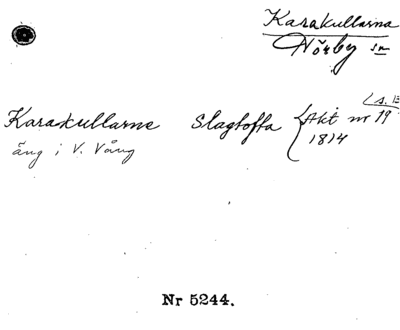 Karakullarna
Nörby sn
Karakullarne Slagtofta { Akt nr 19
äng i V. Vång 1814
Nr 5244.